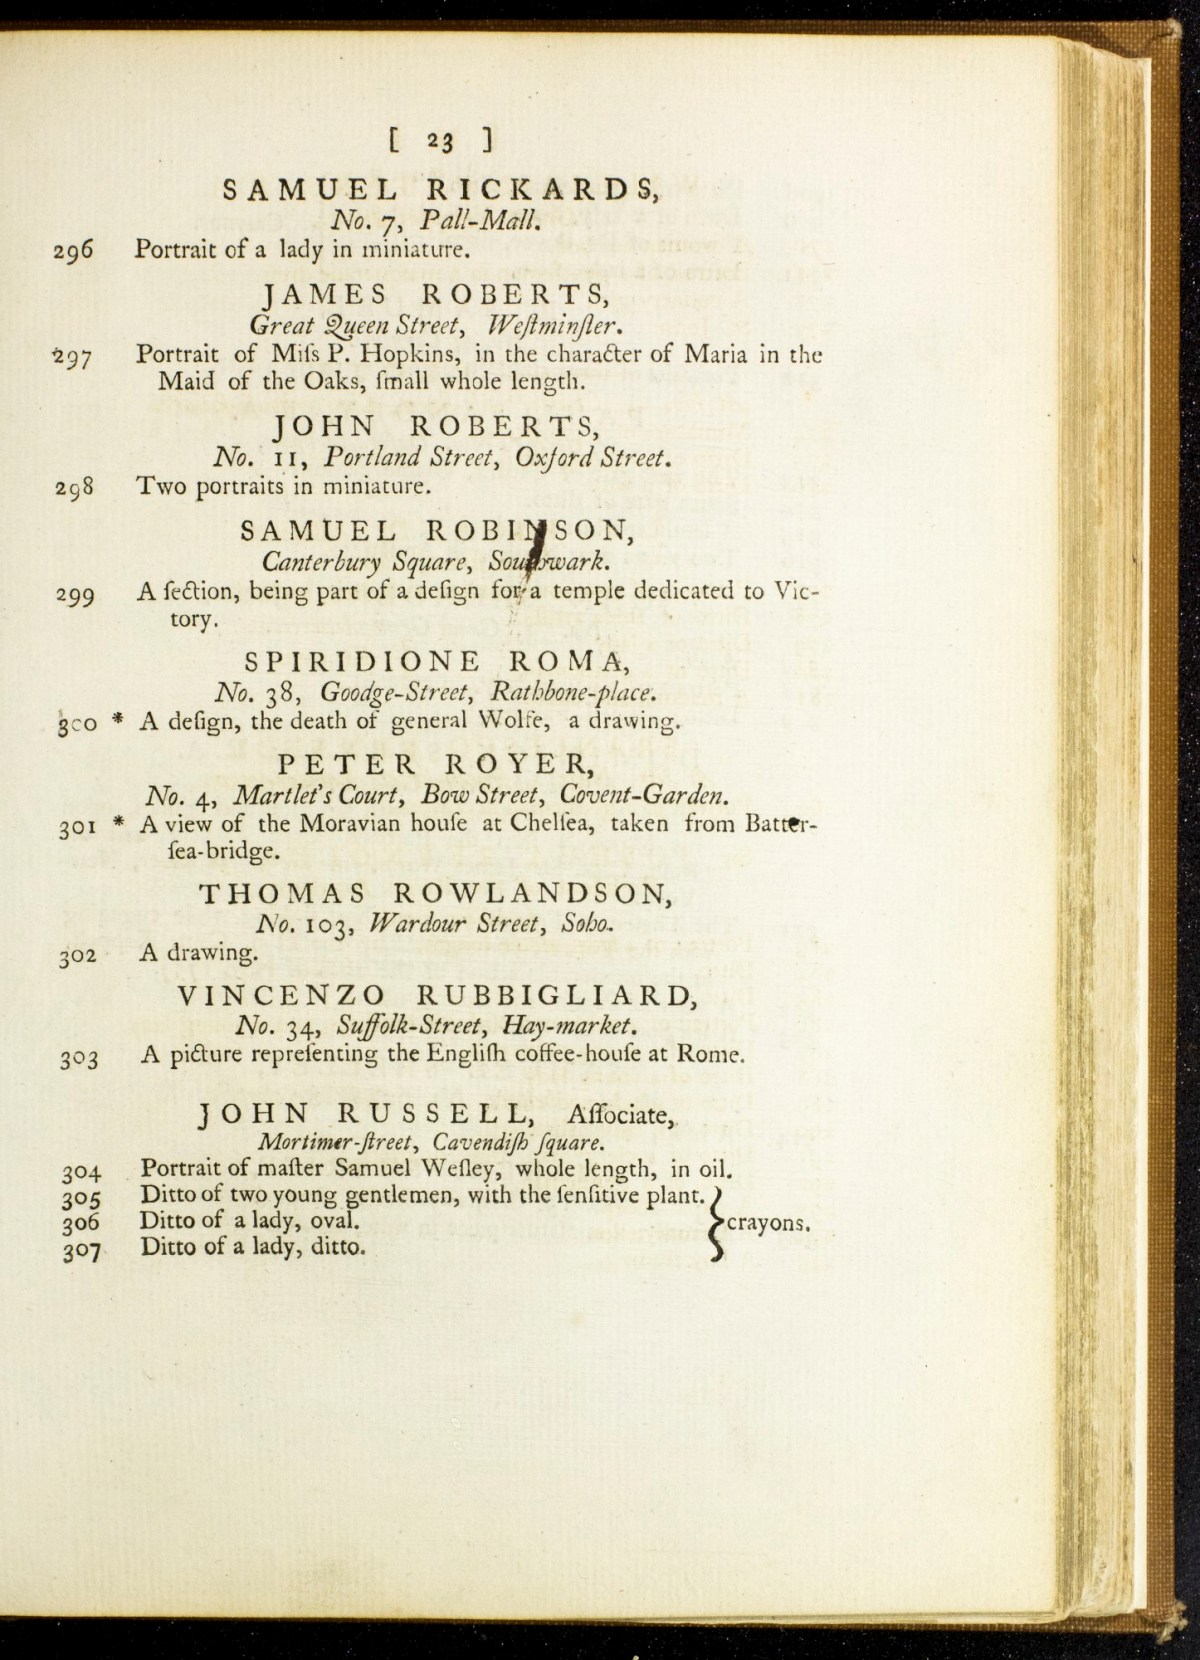 [ 23 ]
SAMUEL RICKARDS,
No. 7, Pall-Mall.
296 Portrait of a lady in miniature.
JAMES ROBERTS,
Great Queen Street, Weſtminſter.
297 Portrait of Miſs P. Hopkins, in the character of Maria in the
Maid of the Oaks, ſmall whole length.
JOHN ROBERTS,
No. 11, Portland Street, Oxford Street.
298 Two portraits in miniature.
SAMUEL ROBINSON,
Canterbury Square, Southwark.
299 A ſection, being part of a deſign for a temple dedicated to Vic-
tory.
SPIRIDIONE ROMA,
No. 38, Goodge-Street, Rathbone-place.
300 * A deſign, the death of general Wolfe, a drawing.
PETER ROYER,
No. 4, Martlet's Court, Bow Street, Covent-Garden.
301 * A view of the Moravian houſe at Chelſea, taken from Batter-
ſea-bridge.
THOMAS ROWLANDSON,
No. 103, Wardour Street, Soho.
302 A drawing.
VINCENZO RUBBIGLIARD,
No. 34, Suffolk-Street, Hay-market.
303 A picture repreſenting the Engliſh coffee-houſe at Rome.
JOHN RUSSELL, Aſſociate,
Mortimer-ſtreet, Cavendiſh ſquare.
304 Portrait of maſter Samuel Weſley, whole length, in oil.
305 Ditto of two young gentlemen, with the ſenſitive plant.
306 Ditto of a lady, oval. } crayons.
307 Ditto of a lady, ditto.